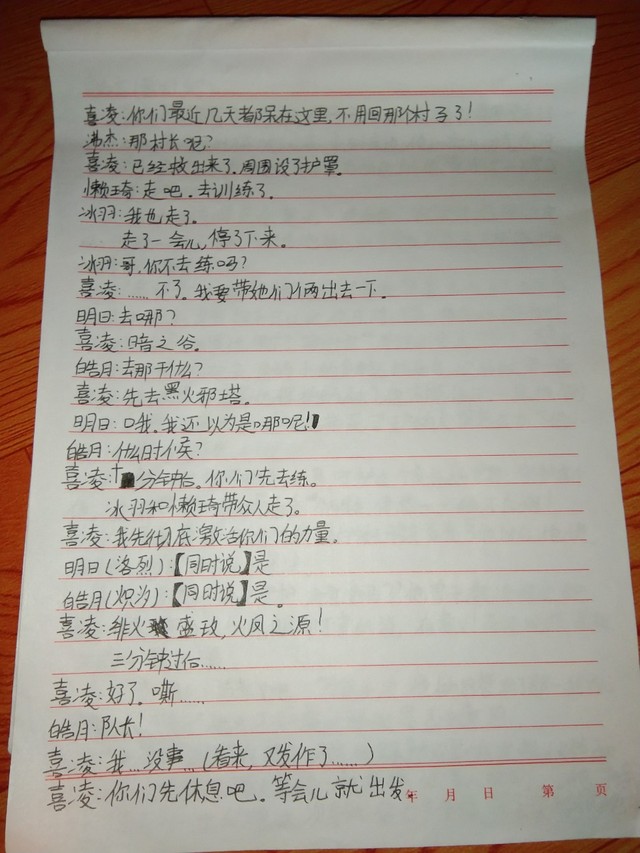 喜凌:你们最近几天都呆在这里,不用回那个村子了!
沸杰:那村长呢?
喜凌:已经救出来了,周围设了护罩。
懒琦:走吧。去训练了。
冰羽:我也走了。
走了一会儿,停了下来。
冰羽:哥,你不去练吗?
喜凌:……不了。我要带她们俩出去一下。
明日:去哪?
喜凌:暗之谷。
皓月:去那干什么?
喜凌:先去黑火邪塔。
明日:哦。我还以为是哪呢!
皓月:什么时候?
喜凌:十分钟后。你们先去练。
冰羽和懒琦带众人走了。
喜凌:我先彻底激活你们的力量。
明日(洛烈):【同时说】是
皓月(炽汐):【同时说】是。
喜凌:绯火盛玫,火凤之源!
三分钟过后……
喜凌:好了。嘶……
皓月:队长!
喜凌:我…没事…(看来,又发作了……)
喜凌:你们先休息吧。等会儿就出发。
年 月 日 第 页